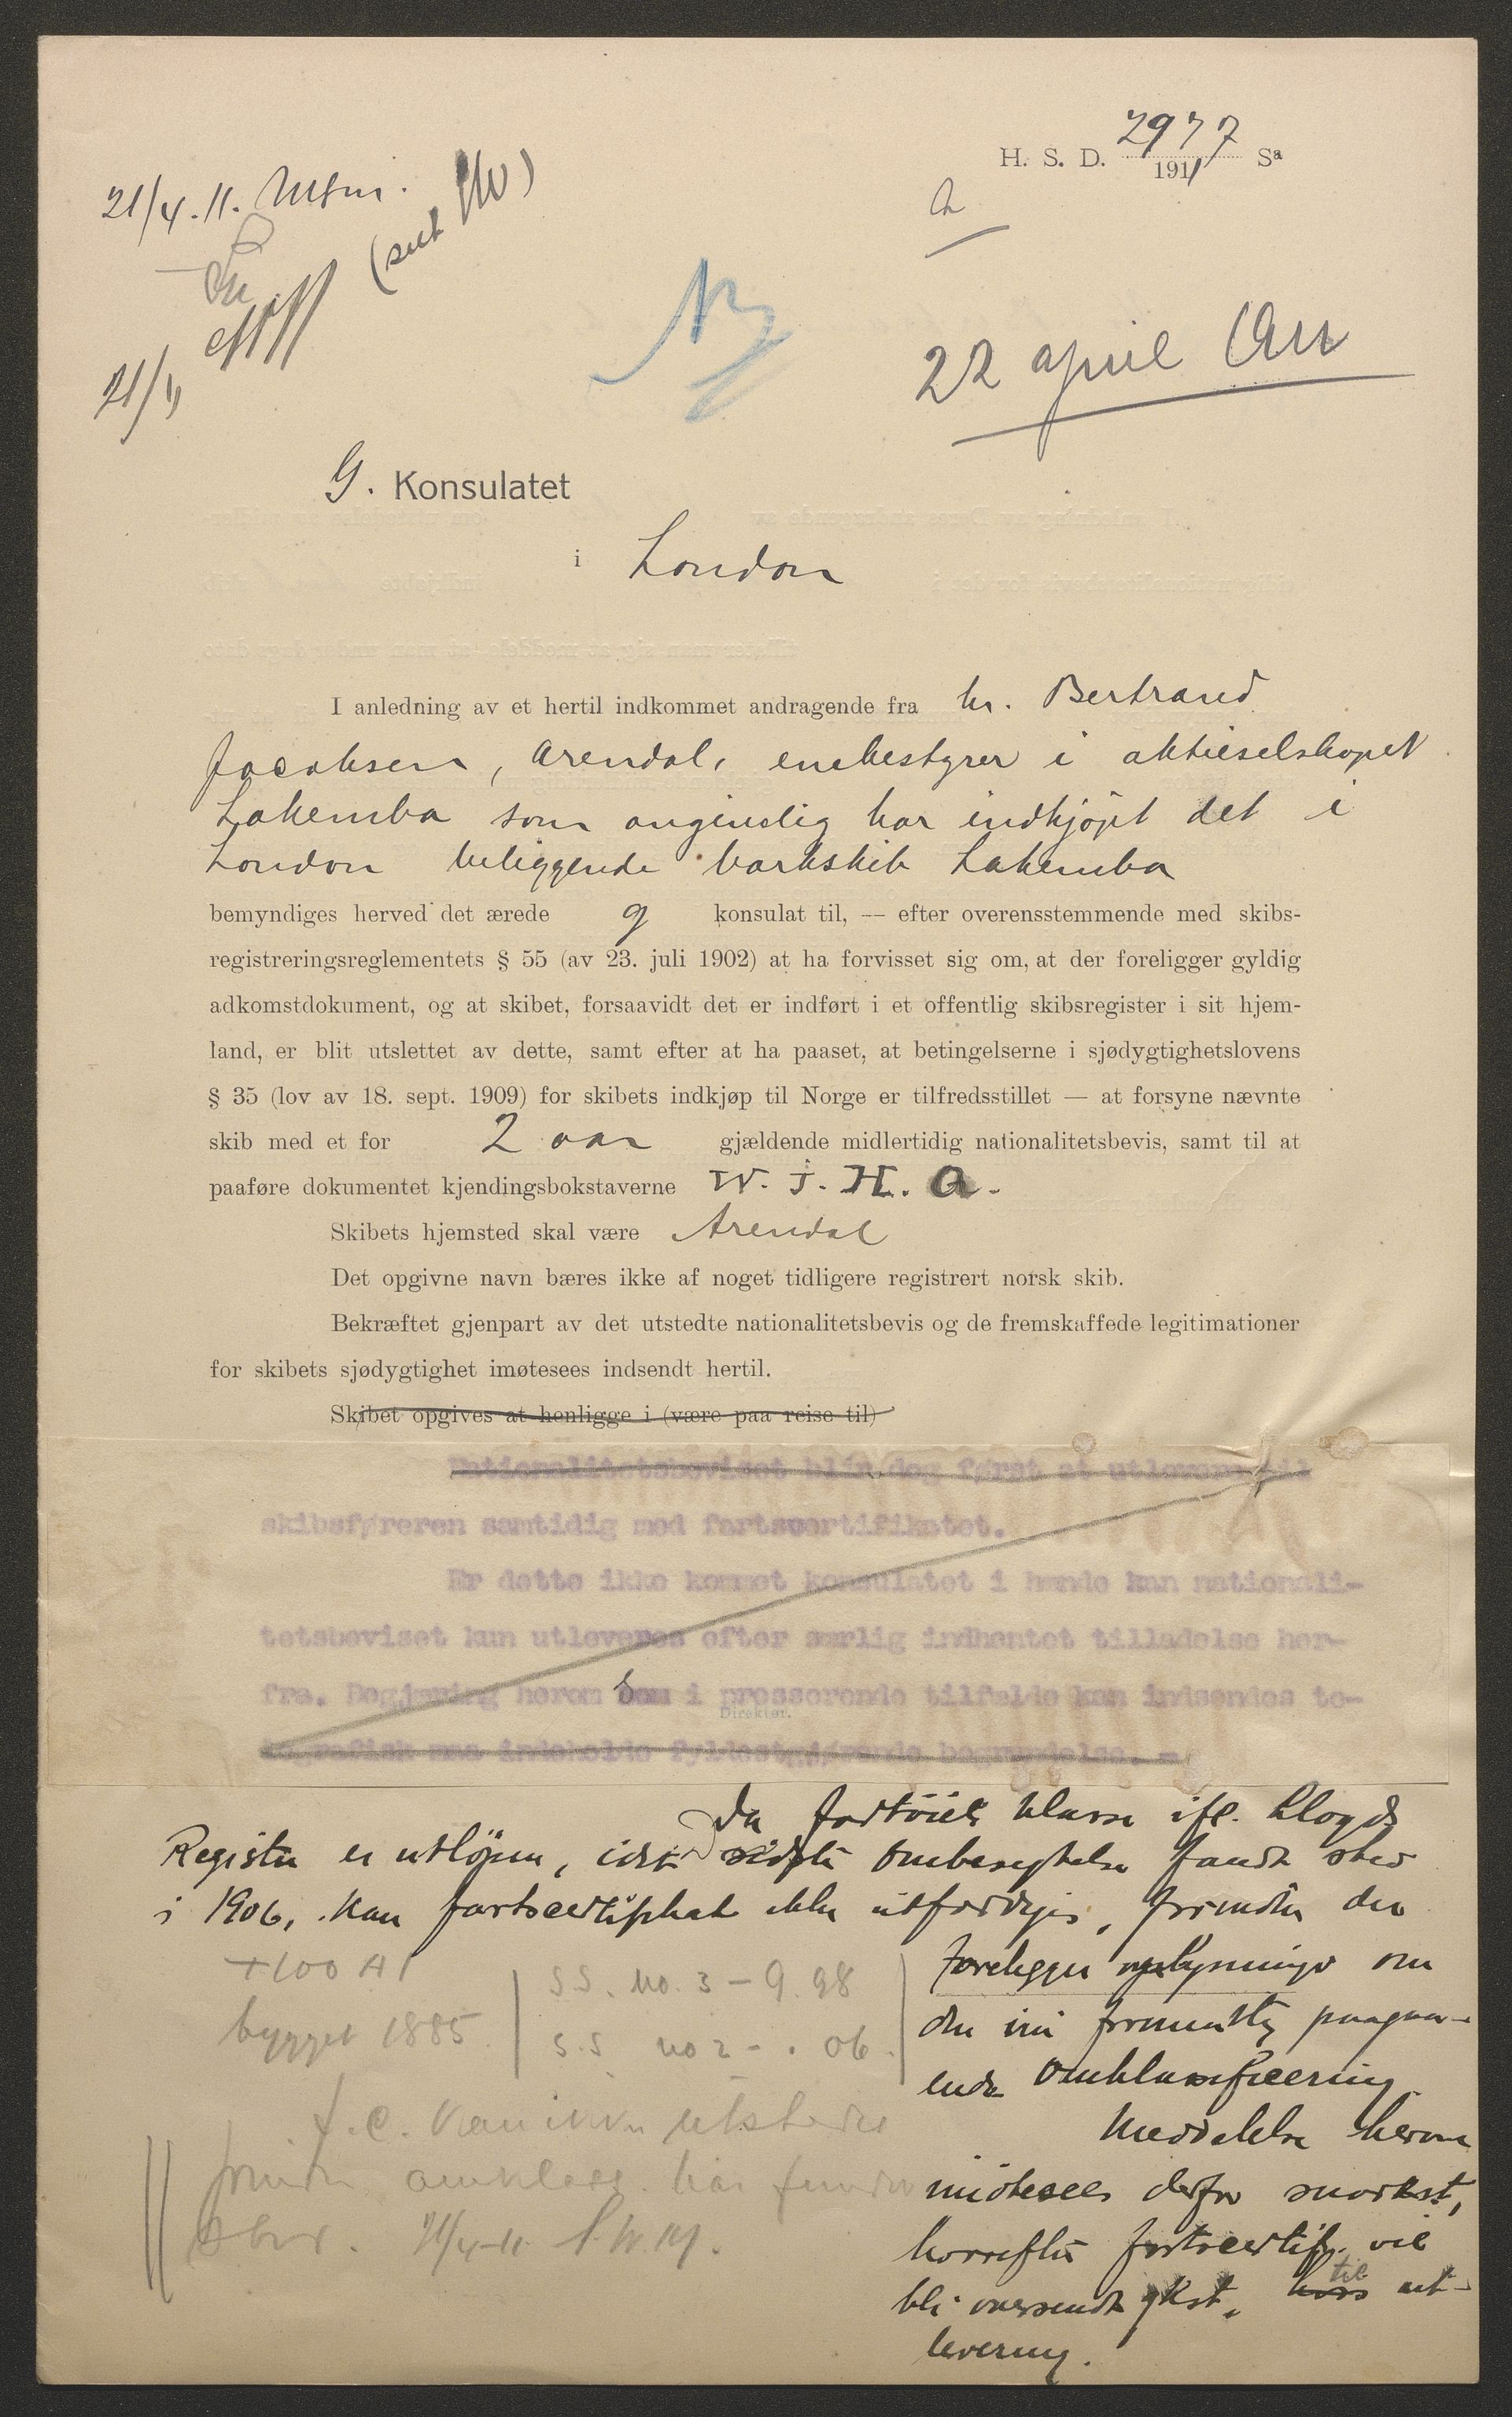 H. S. D. 2977 Sa
1911
21/4.11.
22 april
21/4
G. Konsulatet
i London
I anledning av et hertil indkommet andragende fra hr. Bertrand
Jacobsen, Arendal, enebestyrer i aktieselskapet
Lakemba som angivelig har indkjøpt det i
London beliggende barkskib Lakemba
bemyndiges herved det ærede g konsulat til, — efter overensstemmende med skibs-
registreringsreglementets § 55 (av 23. juli 1902) at ha forvisset sig om, at der foreligger gyldig
adkomstdokument, og at skibet, forsaavidt det er indført i et offentlig skibsregister i sit hjem-
land, er blit utslettet av dette, samt efter at ha paaset, at betingelserne i sjødygtighetslovens
§ 35 (lov av 18. sept. 1909) for skibets indkjøp til Norge er tilfredsstillet — at forsyne nævnte
skib med et for 2 aar gjældende midlertidig nationalitetsbevis, samt til at
paaføre dokumentet kjendingsbokstaverne W. J. H. A.
Skibets hjemsted skal være Arendal
Det opgivne navn bæres ikke af noget tidligere registrert norsk skib.
Bekræftet gjenpart av det utstedte nationalitetsbevis og de fremskaffede legitimationer
for skibets sjødygtighet imøtesees indsendt hertil.
Skibet opgives at henligge i (være paa reise til)
Nationalitetsbeviset blir dog først at utlevere til
skibsføreren samtidig med fartscertifikatet.
Er dette ikke kommet konsulatet i hænde kan nationali-
tetsbeviset kun utleveres efter særlig indhentet tilladelse her-
fra. Begjæring herom som i presserende tilfælde kan indsendes te-
Direktør.
legrafisk maa indeholde fyldestgjørende begrundelse.
Da fartöiets klasse ifl. Lloyds
Register er utlöpen, idet sidste ombesigtelse fandt sted
i 1906, kan fartscertifikat ikke utfærdiges, forinden der
foreligger oplysninger om
den nu formentlig paagaa-
ende omklassificering.
Meddelelse herom
imötesees derfor snarest,
hvorefter fartscertif. vil
bli oversendt gkst. til ut-
levering.
+100 A1
bygget 1885
S.S. no. 3 - 9.98
S.S no 2 - . 06.
f.c. kan ikke utstedes
forinden omklass. har fundet
sted. 21/4-11